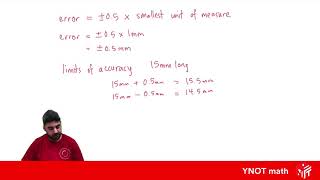 error = ±0.5 × smallest unit of measure
error = ±0.5 × 1mm
= ±0.5mm
limits of accuracy 15mm long
15mm + 0.5mm = 15.5mm
15mm - 0.5mm = 14.5mm
YNOT math